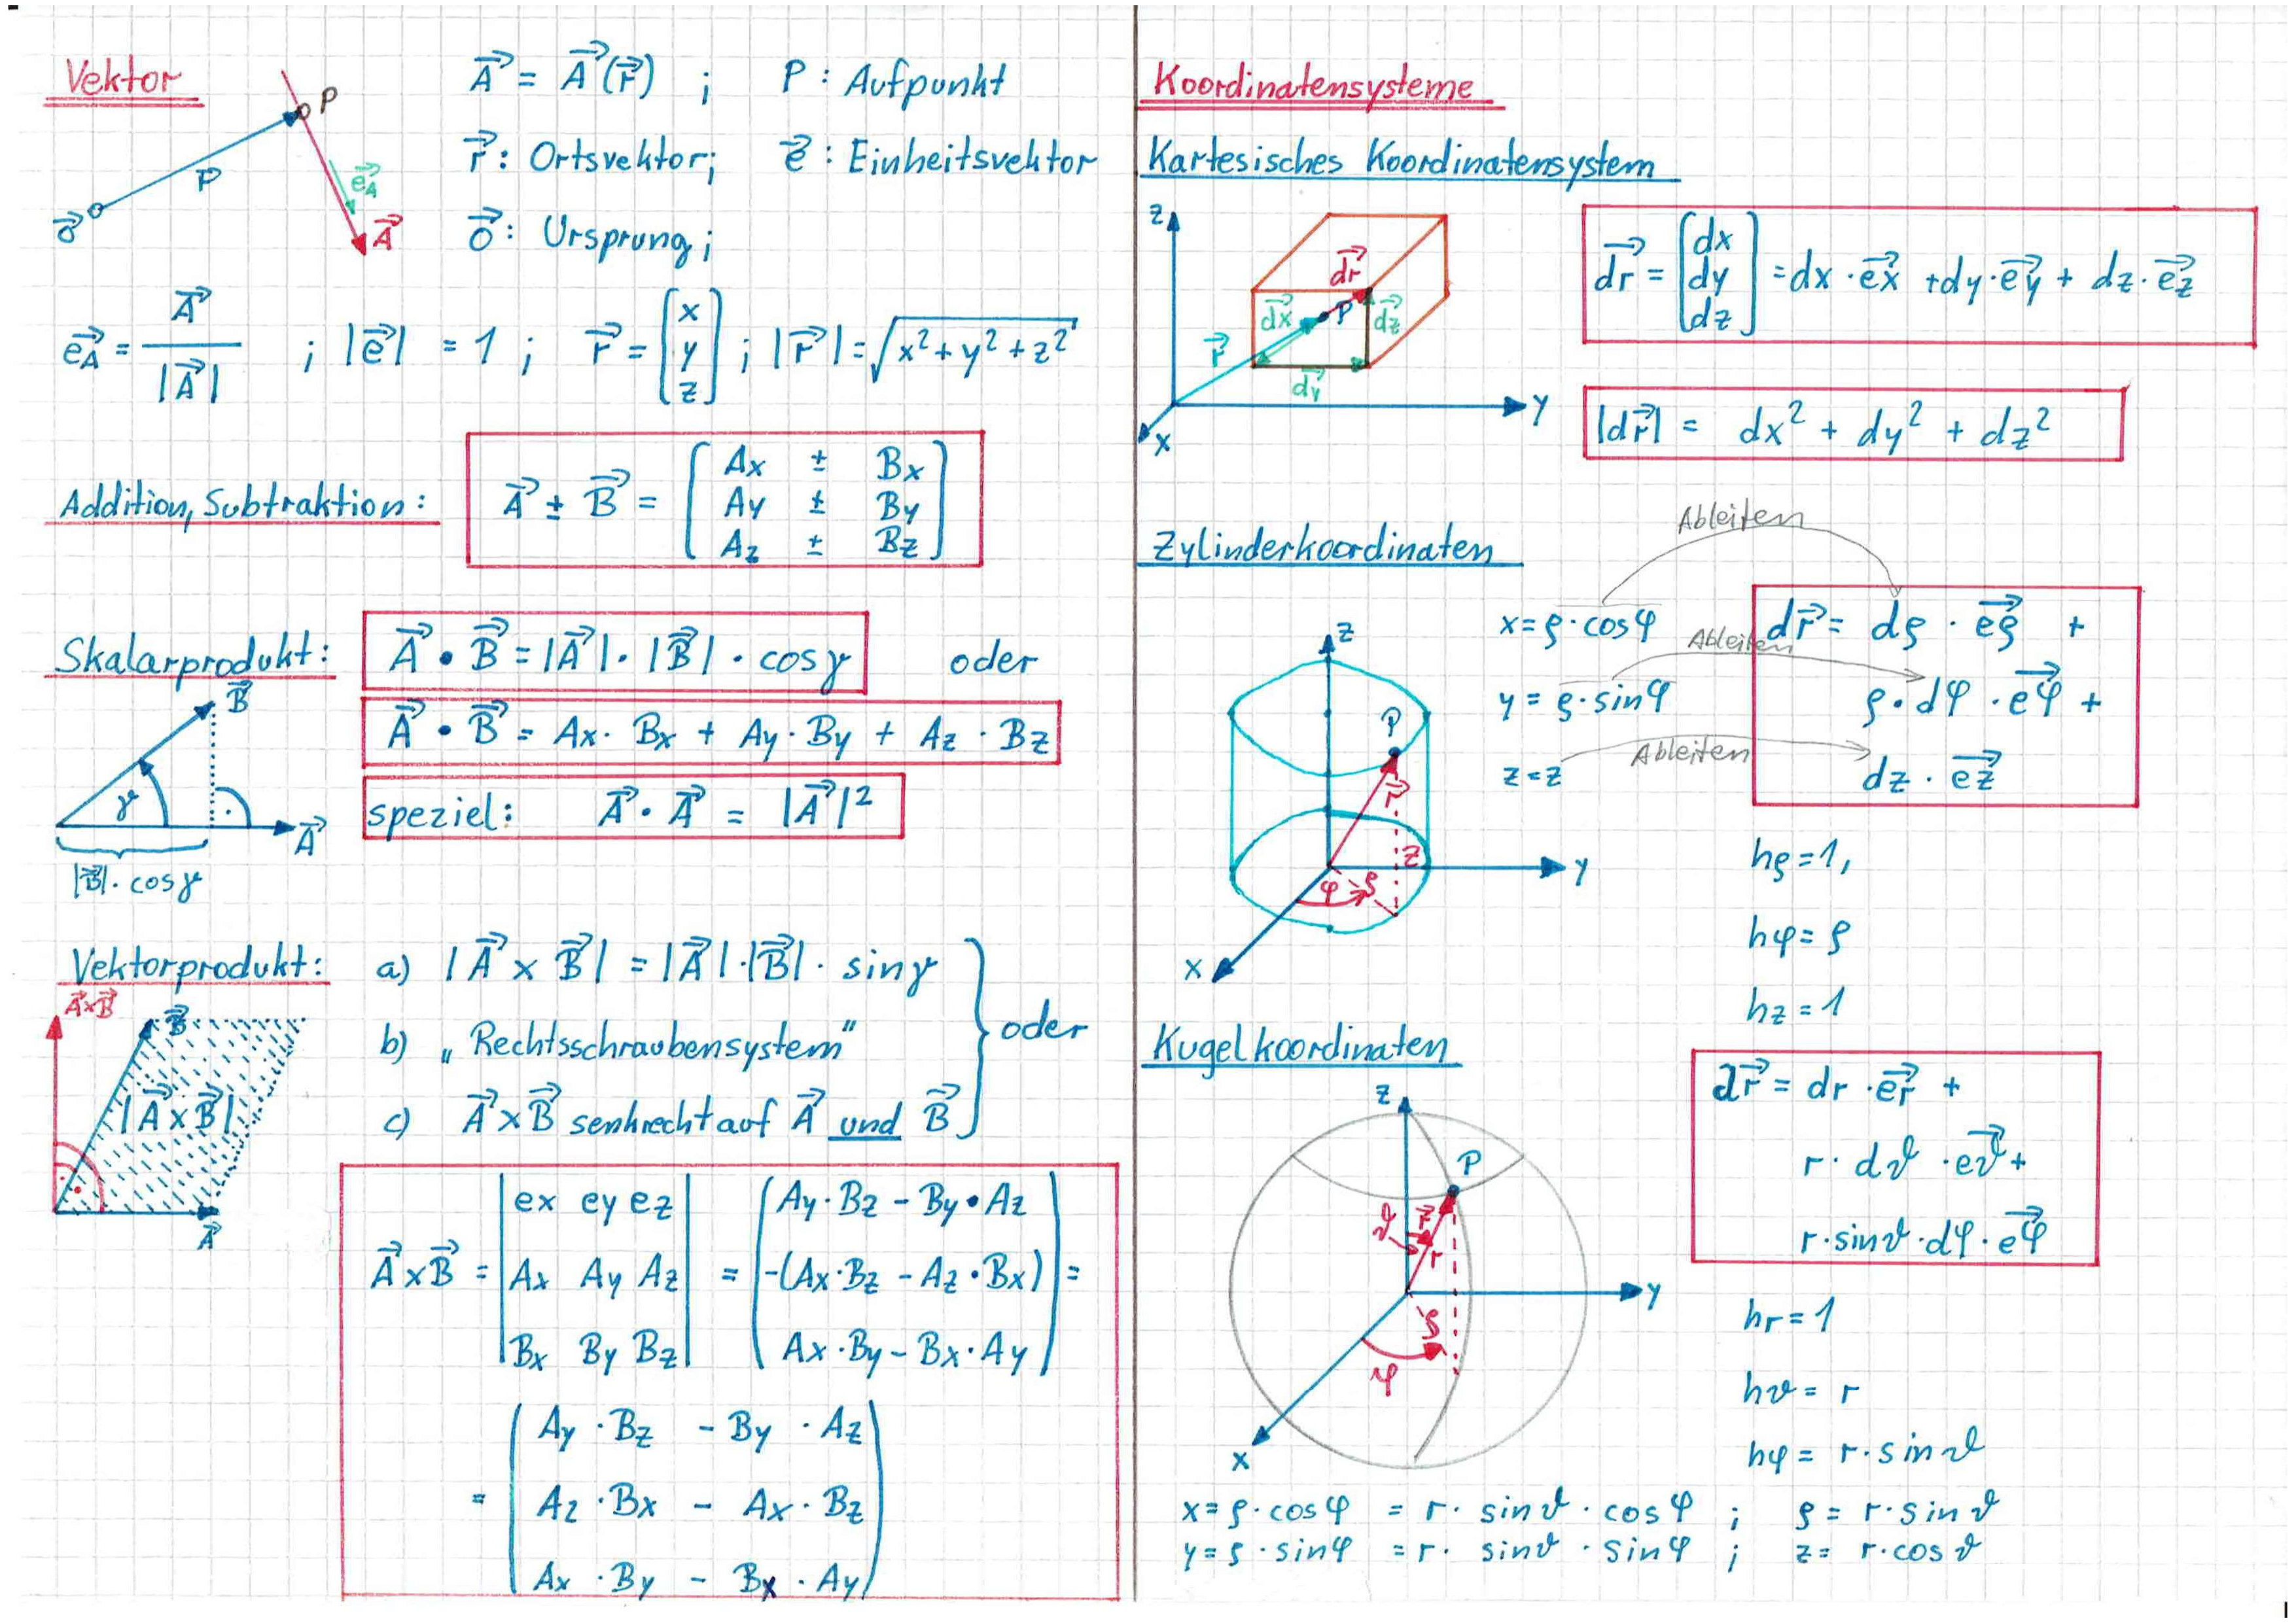 Vektor
P
r⃗
e⃗A
A⃗
O⃗
A⃗ = A⃗(r⃗) ; P : Aufpunkt
r⃗ : Ortsvektor; e⃗ : Einheitsvektor
O⃗ : Ursprung ;
e⃗A = A⃗ / |A⃗| ; |e⃗| = 1 ; r⃗ = [x y z] ; |r⃗| = √x² + y² + z²
Addition, Subtraktion :
A⃗ ± B⃗ =
Ax ± Bx
Ay ± By
Az ± Bz
Skalarprodukt :
A⃗ • B⃗ = |A⃗| · |B⃗| · cosγ oder
A⃗ • B⃗ = Ax · Bx + Ay · By + Az · Bz
speziel : A⃗ · A⃗ = |A⃗|²
B⃗
γ
A⃗
|B⃗| · cosγ
Vektorprodukt :
a) |A⃗ × B⃗| = |A⃗| · |B⃗| · sinγ
b) „Rechtsschraubensystem“
c) A⃗ × B⃗ senkrecht auf A⃗ und B⃗
oder
A⃗×B⃗
B⃗
|A⃗ × B⃗|
A⃗
A⃗ × B⃗ = | ex ey ez | = ( Ay · Bz - By • Az )
| Ax Ay Az | = ( -(Ax · Bz - Az • Bx) ) =
| Bx By Bz | ( Ax · By - Bx · Ay )
=
Ay · Bz - By · Az
Az · Bx - Ax · Bz
Ax · By - Bx · Ay
Koordinatensysteme
Kartesisches Koordinatensystem
z
dr⃗
dx⃗
P
dz⃗
r⃗
dy⃗
y
x
dr⃗ = [dx dy dz] = dx · e⃗x + dy · e⃗y + dz · e⃗z
|dr⃗| = dx² + dy² + dz²
Zylinderkoordinaten
Ableiten
x = ρ · cosφ
Ableiten
y = ρ · sinφ
Ableiten
z = z
dr⃗ = dρ · e⃗ρ +
ρ · dφ · e⃗φ +
dz · e⃗z
z
P
r⃗
z
y
φ
ρ
x
hρ = 1,
hφ = ρ
hz = 1
Kugelkoordinaten
dr⃗ = dr · e⃗r +
r · dϑ · e⃗ϑ +
r · sinϑ · dφ · e⃗φ
z
P
ϑ
r⃗
r
y
ρ
φ
x
hr = 1
hϑ = r
hφ = r · sinϑ
x = ρ · cosφ = r · sinϑ · cosφ ; ρ = r · sinϑ
y = ρ · sinφ = r · sinϑ · sinφ ; z = r · cosϑ